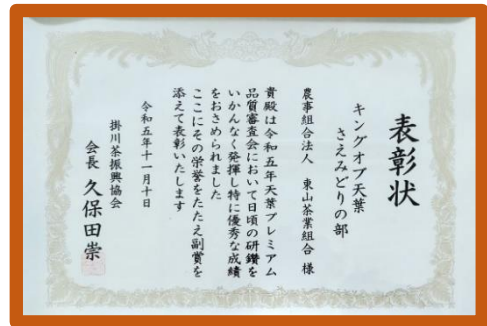 表彰状
キングオブ天葉
さえみどりの部
農事組合法人 東山茶業組合 様
貴殿は令和五年天葉プレミアム
品質審査会において日頃の研鑽を
いかんなく発揮し特に優秀な成績
をおさめられました
ここにその栄誉をたたえ副賞を
添えて表彰いたします
令和五年十一月十日
掛川茶振興協会
会長 久保田崇